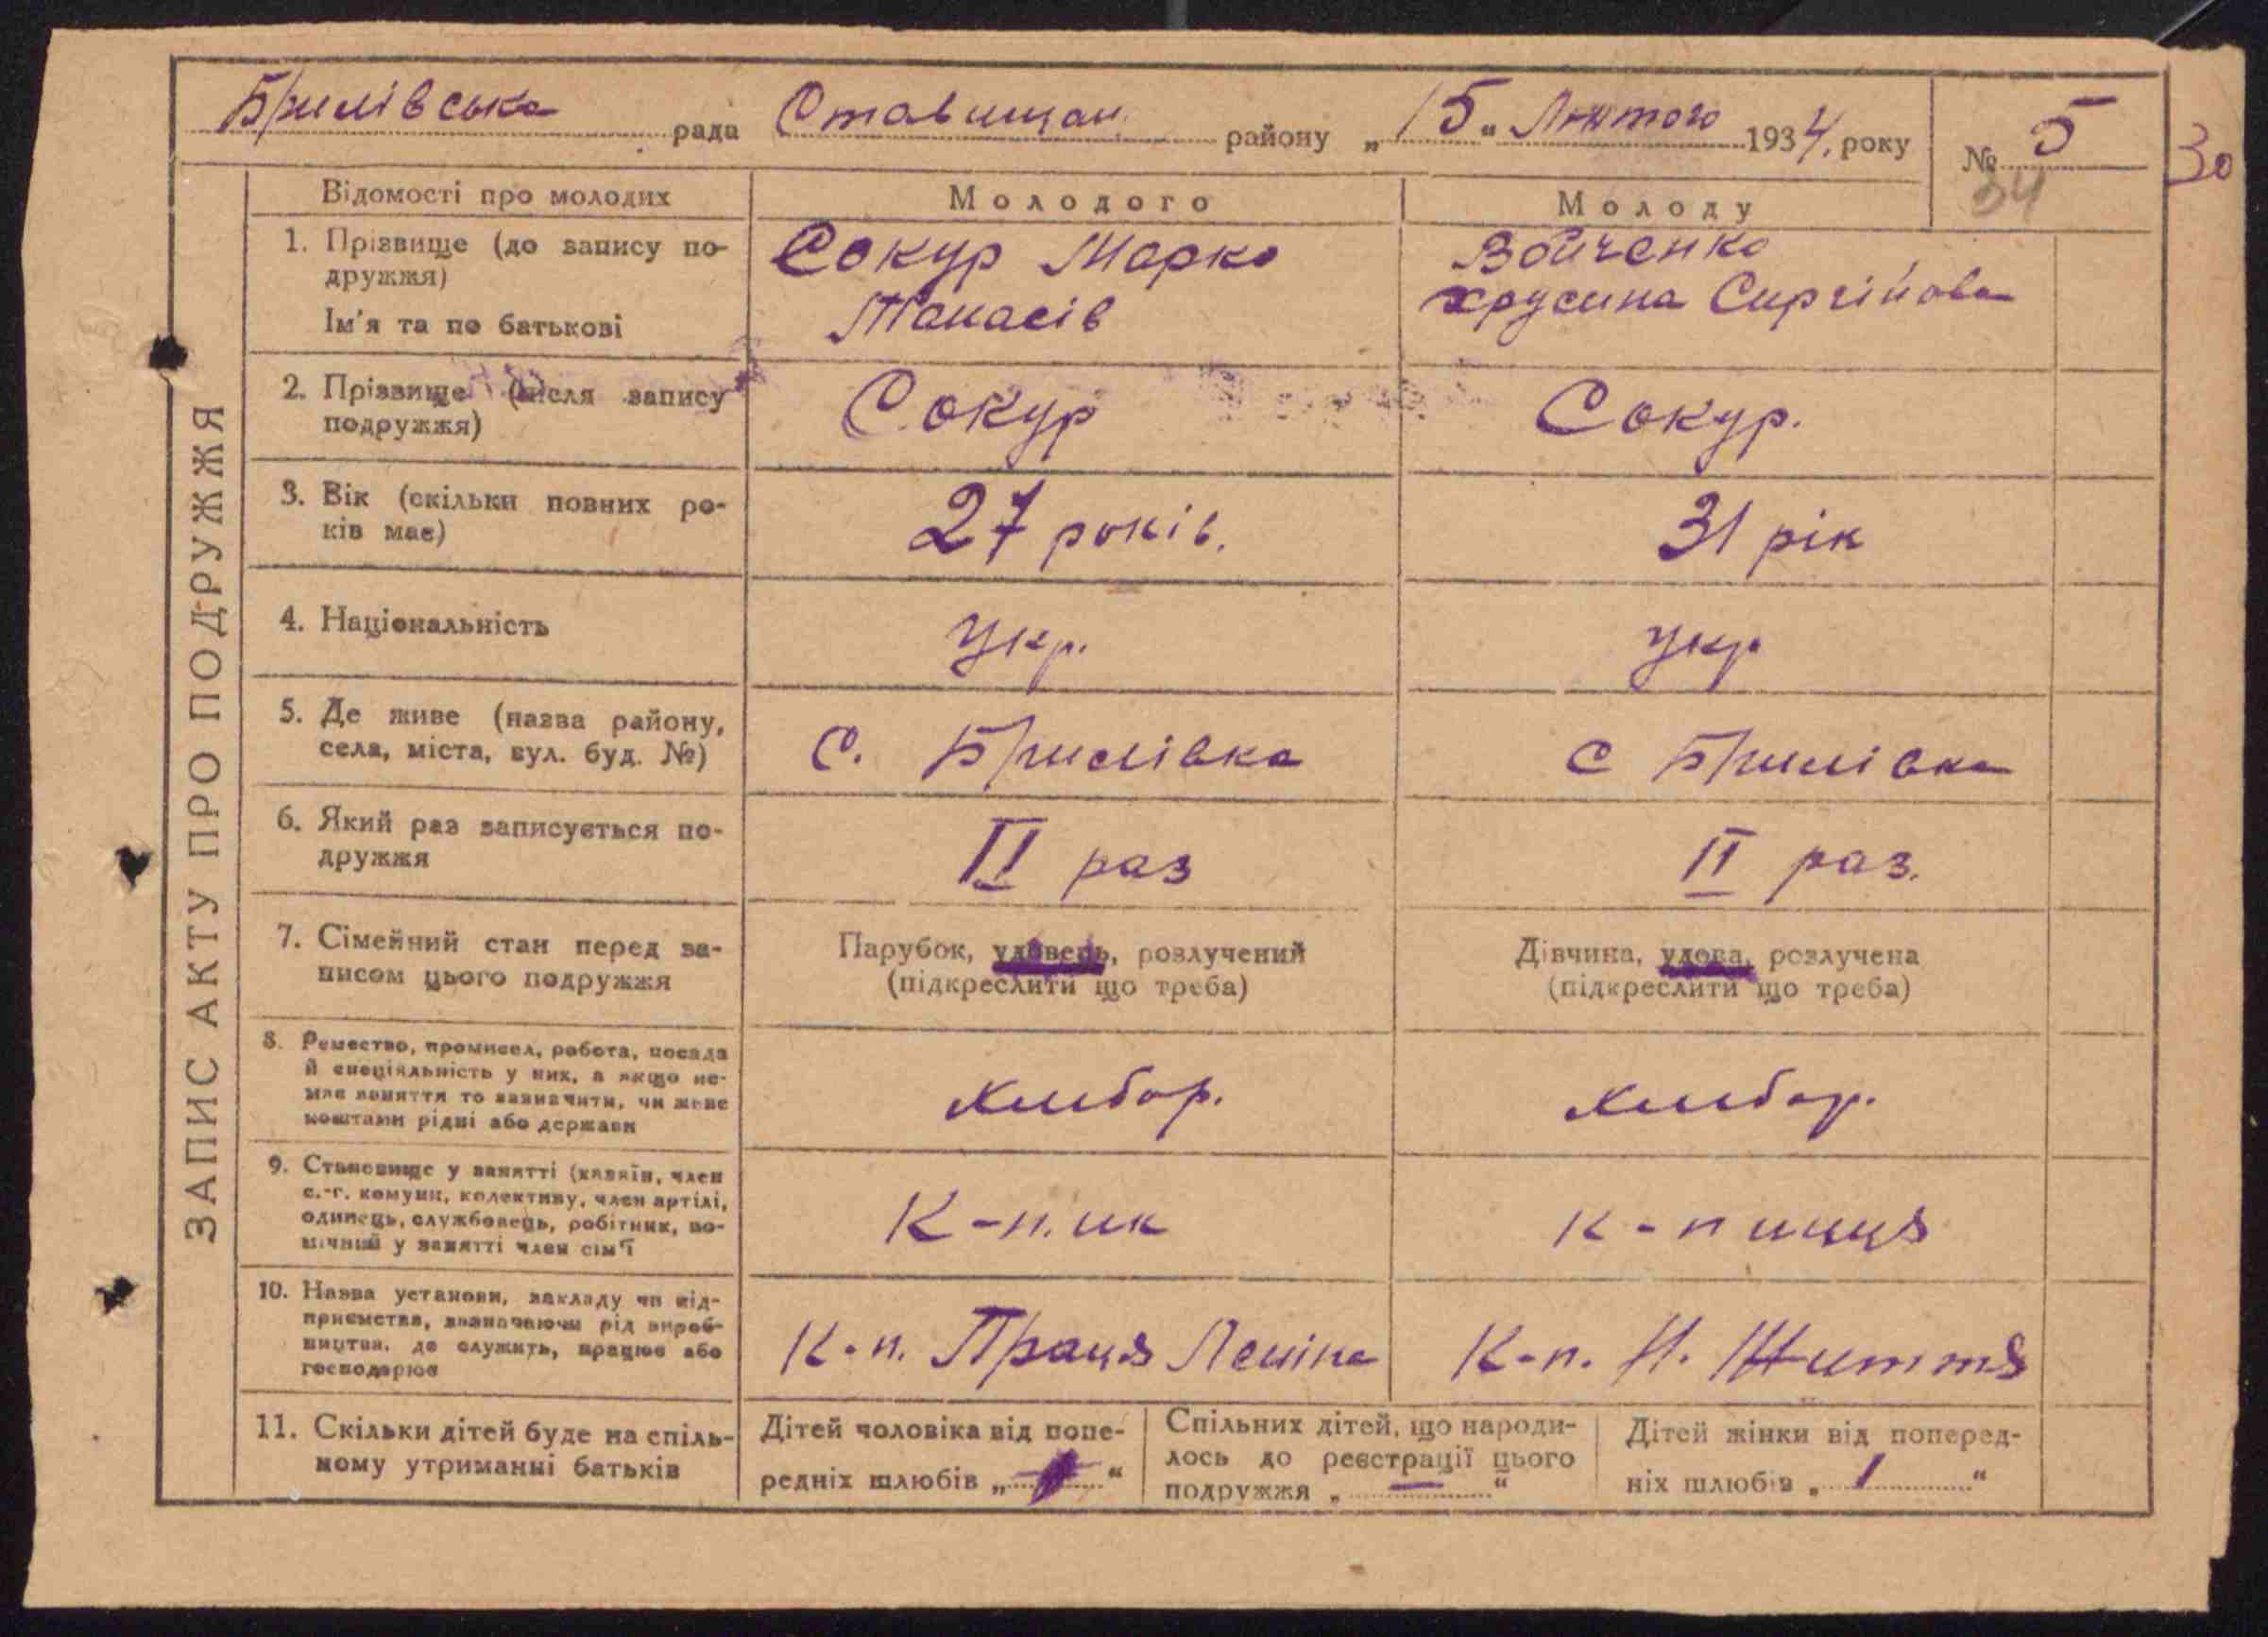 Брилівська рада Ставищан. району „15" Лютого 1934, року № 5
30
34
ЗАПИС АКТУ ПРО ПОДРУЖЖЯ
Відомості про молодих
Молодого
Молоду
1. Прізвище (до запису по-
дружжя)
Ім'я та по батькові
Сокур Марко
Танасів
Войченко
хрусина Сиргійова
2. Прізвище (після запису
подружжя)
Сокур
Сокур.
3. Вік (скільки повних ро-
ків має)
27 років.
31 рік
4. Національність
Укр.
Укр
5. Де живе (назва району,
села, міста, вул. буд. №)
С. Брилівка
С Брилівка
6. Який раз записується по-
дружжя
II раз
II раз.
7. Сімейний стан перед за-
писом цього подружжя
Парубок, удовець, розлучений
(підкреслити що треба)
Дівчина, удова, розлучена
(підкреслити що треба)
8. Ремество, промисел, робота, посада
й спеціяльність у них, а якщо не-
має заняття то зазначити, чи живе
коштами рідні або держави
хлибор.
хлибор.
9. Становище у занятті (хазяїн, член
с.-г. комуни, колективу, член артілі,
одинець, службовець, робітник, по-
мічний у занятті член сім'ї
К-п.ик
К-пиця
10. Назва установи, закладу чи під-
приємства, зазначаючи рід вироб-
ництва, де служить, працює або
господарює
К-п. Праця Леніна
К-п. Н. Життя
11. Скільки дітей буде на спіль-
ному утриманні батьків
Дітей чоловіка від попе-
редніх шлюбів „ "
Спільних дітей, що народи-
лось до реєстрації цього
подружжя „ — "
Дітей жінки від поперед-
ніх шлюбів „ 1 "